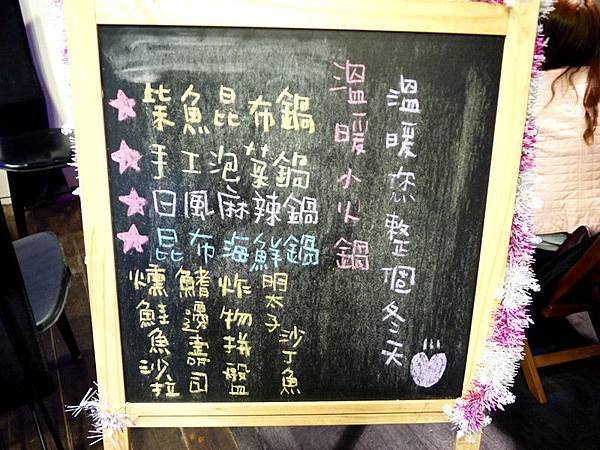 溫暖您整個冬天
溫暖小火鍋
柴魚昆布鍋
手工泡菜鍋
日風麻辣鍋
昆布海鮮鍋
明太子沙丁魚
炸物拼盤
鰭邊壽司
燻鮭魚沙拉